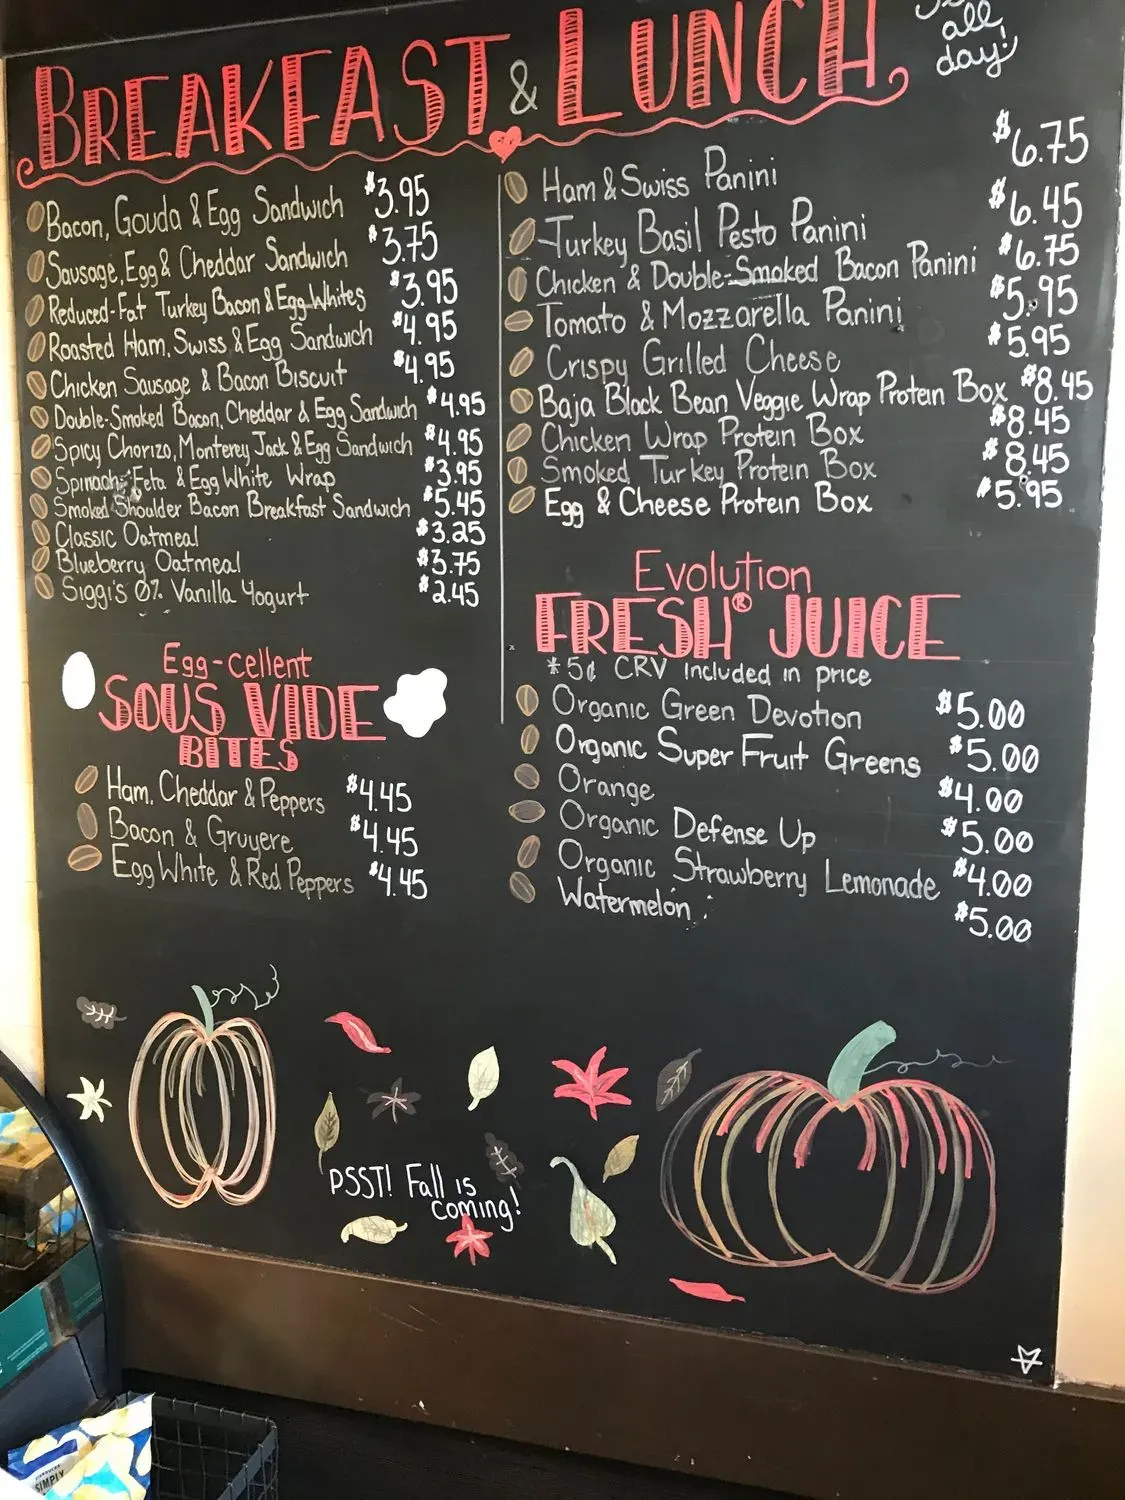 BREAKFAST & LUNCH
all
day!
Bacon, Gouda & Egg Sandwich $3.95
Sausage, Egg & Cheddar Sandwich $3.75
Reduced-Fat Turkey Bacon & Egg Whites $3.95
Roasted Ham, Swiss & Egg Sandwich $4.95
Chicken Sausage & Bacon Biscuit $4.95
Double-Smoked Bacon, Cheddar & Egg Sandwich $4.95
Spicy Chorizo, Monterey Jack & Egg Sandwich $4.95
Spinach, Feta & Egg White Wrap $3.95
Smoked Shoulder Bacon Breakfast Sandwich $5.45
Classic Oatmeal $3.25
Blueberry Oatmeal $3.75
Siggi's 0% Vanilla Yogurt $2.45
Egg-cellent
SOUS VIDE
BITES
Ham, Cheddar & Peppers $4.45
Bacon & Gruyere $4.45
Egg White & Red Peppers $4.45
Ham & Swiss Panini $6.75
Turkey Basil Pesto Panini $6.45
Chicken & Double-Smoked Bacon Panini $6.75
Tomato & Mozzarella Panini $5.95
Crispy Grilled Cheese $5.95
Baja Black Bean Veggie Wrap Protein Box $8.45
Chicken Wrap Protein Box $8.45
Smoked Turkey Protein Box $8.45
Egg & Cheese Protein Box $5.95
Evolution
FRESH® JUICE
*5¢ CRV included in price
Organic Green Devotion $5.00
Organic Super Fruit Greens $5.00
Orange $4.00
Organic Defense Up $5.00
Organic Strawberry Lemonade $4.00
Watermelon $5.00
PSST! Fall is
coming!
SIMPLY